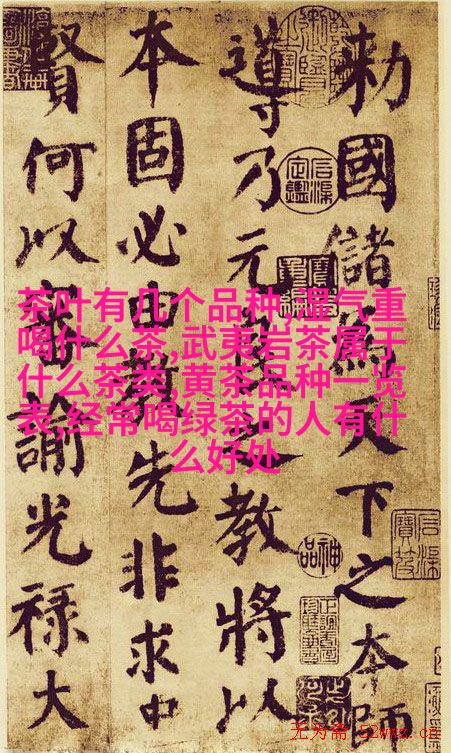 勅國儲為天下之本師
導乃元良之教將以
本固必由教先非求中
賢何以審諭光祿大
茶叶有几个品种,湿气重
喝什么茶,武夷岩茶属于
什么茶类,黄茶品种一览
表,经常喝绿茶的人有什
么好处
神品
无为斋 52wwz.cn